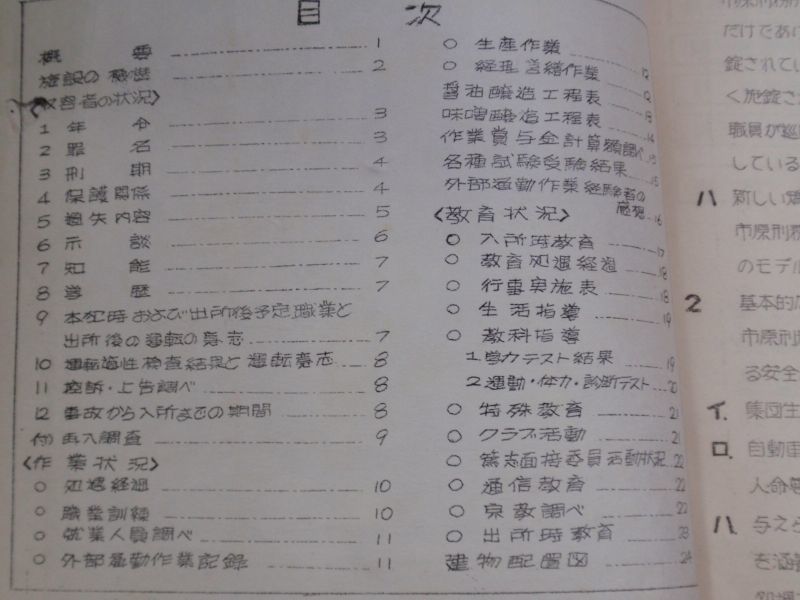 目次
概要 1
施設の概歴 2
〈収容者の状況〉
1 年令 3
2 罪名 3
3 刑期 4
4 保護関係 4
5 過失内容 5
6 示談 6
7 知能 7
8 学歴 7
9 本犯時および出所後予定職業と
出所後の運転の意志 7
10 運転適性検査結果と運転意志 8
11 控訴・上告調べ 8
12 事故から入所までの期間 8
(付)再入調査 9
〈作業状況〉
○ 処遇経過 10
○ 職業訓練 10
○ 就業人員調べ 11
○ 外部通勤作業記録 11
○ 生産作業
○ 経理営繕作業 12
醤油醸造工程表 12
味噌醸造工程表 13
作業賞与金計算額調べ 15
各種試験受験結果 15
外部通勤作業経験者の
感想 16
〈教育状況〉
○ 入所時教育 17
○ 教育処遇経過 18
○ 行事実施表 18
○ 生活指導 19
○ 教科指導
1.学力テスト結果 19
2.運動・体力・診断テスト 20
○ 特殊教育 21
○ クラブ活動 21
○ 篤志面接委員活動状況 22
○ 通信教育 22
○ 宗教調べ 22
○ 出所時教育 23
建物配置図 24
だけであ
錠されてい
く施錠さ
職員が巡
している
ハ 新しい
市原刑務
のモデル
2 基本的
市原刑
る安全
イ. 集団生
ロ. 自動車
人命
ハ. 与え
を涵養